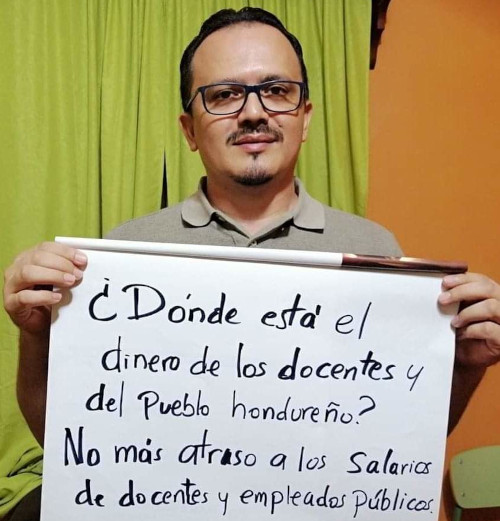 ¿Dónde está el
dinero de los docentes y
del Pueblo hondureño?
No más atraso a los Salarios
de docentes y empleados Públicos.